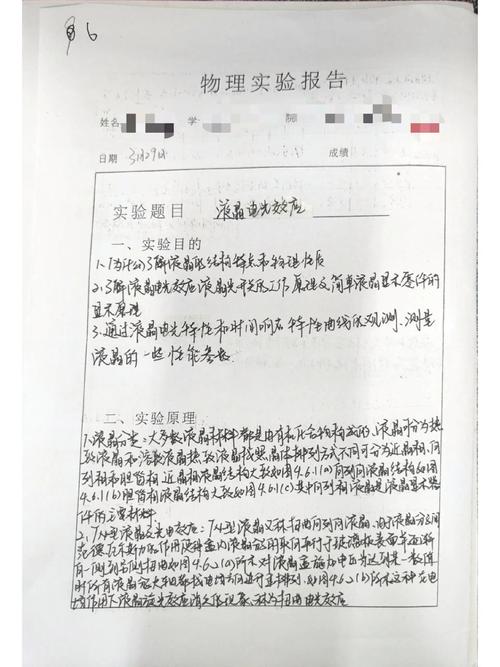 物理实验报告
姓名 学 院
日期 3月29日 成绩
实验题目 液晶电光效应
一、实验目的
1、了解液晶的结构特点和物理性质
2、了解液晶电光效应液晶光开关的工作原理及简单液晶显示器件的
显示原理
3、通过液晶电光特性和时间响应特性曲线的观测、测量
液晶的一些性能参数
二、实验原理
1、液晶分类:大多数液晶材料都是由有机化合物构成的、液晶可分为热
致液晶和溶致液晶热致液晶按照晶体排列方式不同可分为近晶相、向
列相和胆甾相 近晶相液晶结构大致如图4.6.1(a)向列相液晶结构如图
4.6.1(b)胆甾相液晶结构大致如图4.6.1(c)其中向列相液晶是液晶显示器
件的主要材料
2、TN型液晶及光电效应:TN型液晶又称扭曲向列相液晶、由于液晶分子间
范德瓦尔斯力的作用使盒内液晶分子取向平行于玻璃板表面
如图4.6.2(a)所示 对液晶盒施加电压当达到某一数值
时所有液晶分子长轴都按电场方向进行重排列、如图4.6.2(b)所示这种在电
场作用下液晶旋光效应消失的现象、称为扭曲电光效应